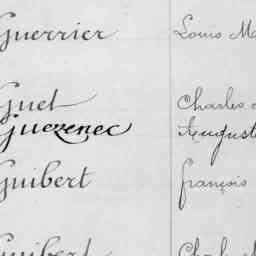 Guerrier Louis M
Guet Charles
Guezenec August
Guibert françois
Guibert Ch